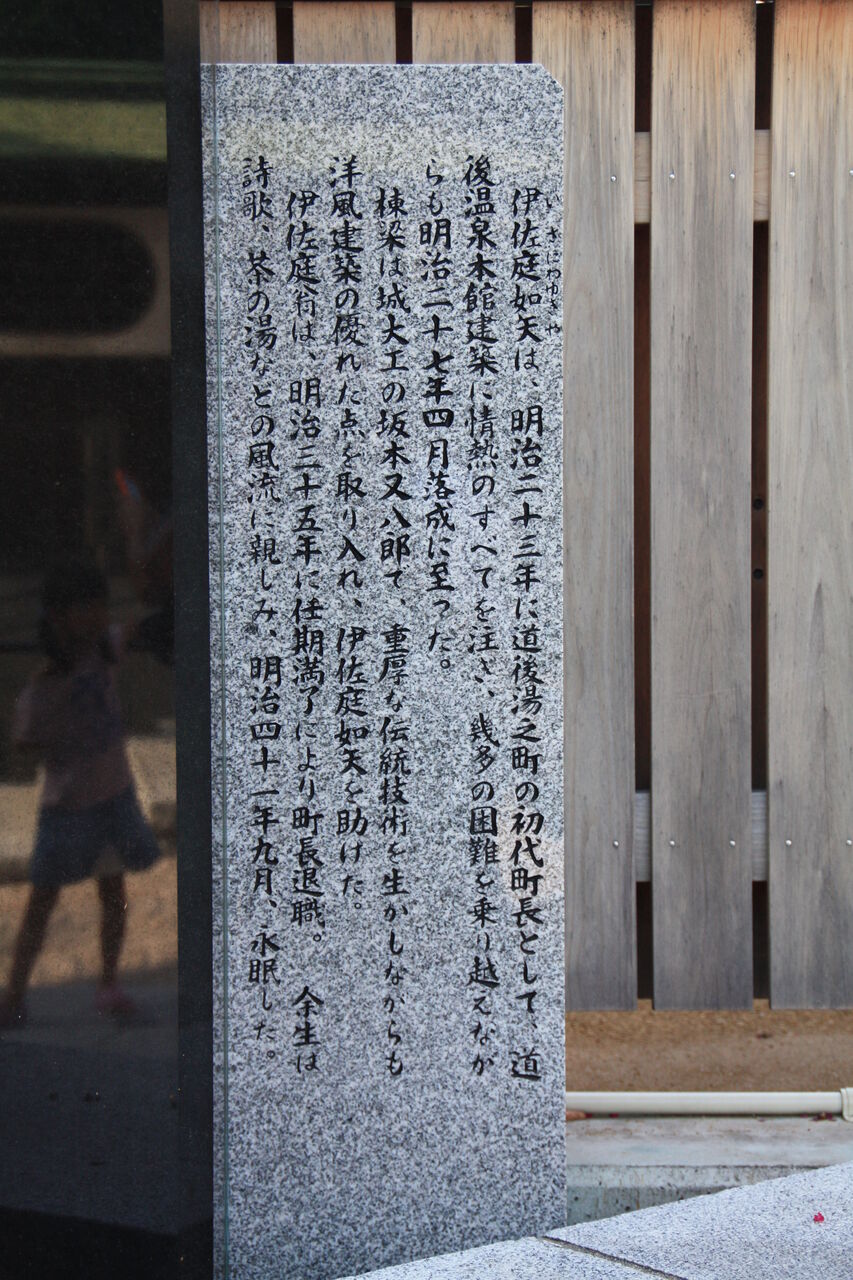 いさにわゆきや
伊佐庭如矢は、明治二十三年に道後湯之町の初代町長として、道
後温泉本館建築に情熱のすべてを注ぎ、幾多の困難を乗り越えなが
らも明治二十七年四月落成に至った。
棟梁は城大工の坂本又八郎で、重厚な伝統技術を生かしながらも
洋風建築の優れた点を取り入れ、伊佐庭如矢を助けた。
伊佐庭翁は、明治三十五年に任期満了により町長退職。余生は
詩歌、茶の湯などの風流に親しみ、明治四十一年九月、永眠した。